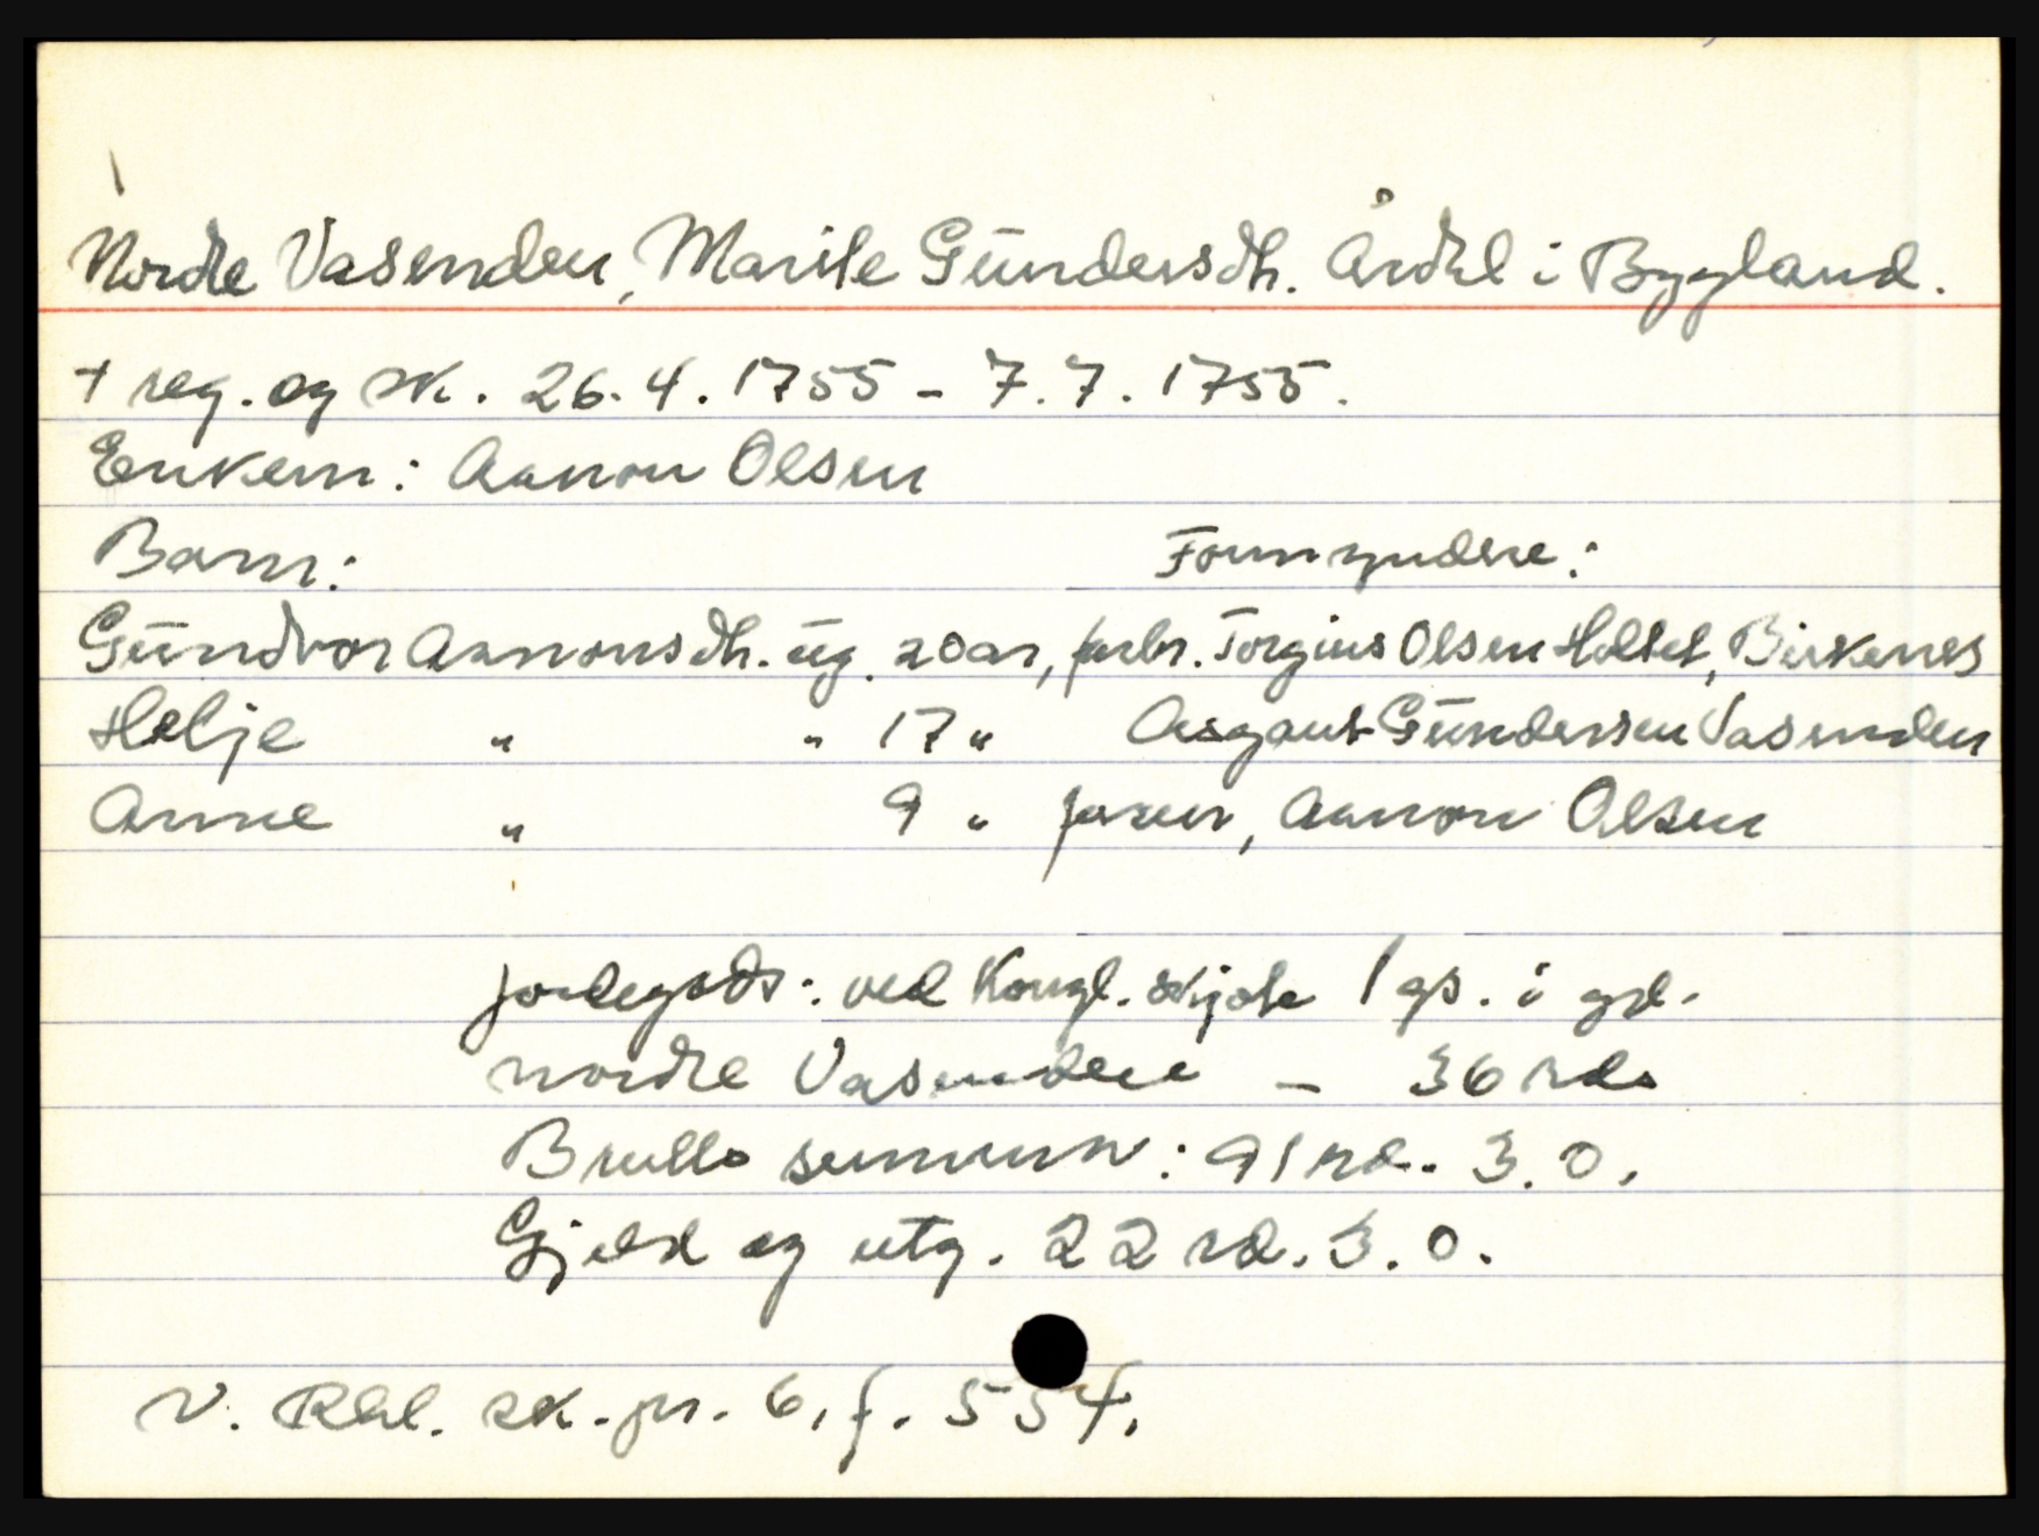 Nordre Vasenden, Marite Gundersdtr. Årdal i Bygland.
+ reg. og sk. 26.4.1755 - 7.7.1755.
Enkem: Aanon Olsen
Barn: Formyndere:
Gundvor Aanonsdtr. ug. 20 år, farbr. Torgius Olsen Holtet, Birkenes
Helje " " 17 " Asgaut Gundersen Vasenden
Anne " 9 " faren, Aanon Olsen
Jordegods: ved Kongl. skjøte 1 gs. i grd.
nordre Vasenden - 36 rdr
Brutto summen: 91 rd. 3.0.
Gjeld og utg. 22 rd. 3.0.
V. Rbl. sk.pr. 6, f. 554.